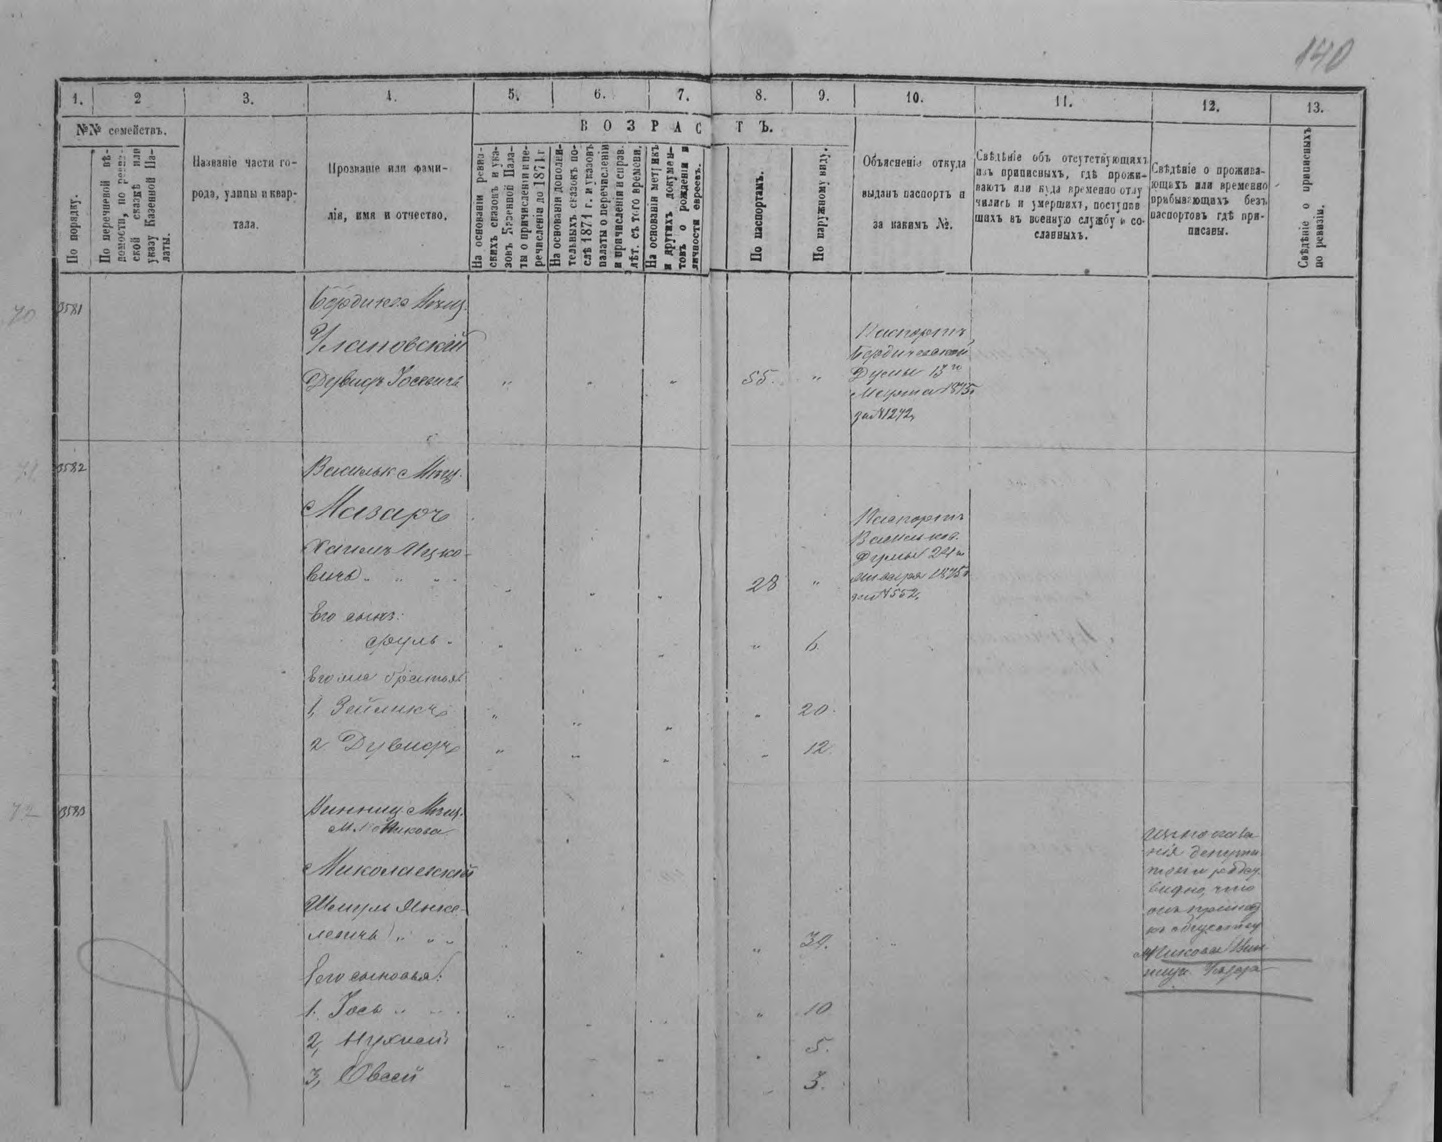 140
1. 2 3. 4. 5. 6. 7. 8. 9. 10. 11. 12. 13.
№№ семействъ.
По порядку.
По перечневой вѣ-
домости, по ревиз-
ской сказкѣ или
указу Казенной Па-
латы.
Названіе части го-
рода, улицы и квар-
тала.
Прозваніе или фами-
лія, имя и отчество.
ВОЗРАСТЪ.
На основаніи ревиз-
скихъ сказокъ и ука-
зовъ Казенной Пала-
ты о причисленіи и пе-
речисленіи до 1871 г.
На основаніи дополни-
тельныхъ сказокъ по-
слѣ 1871 г. и указовъ
палаты о перечисленіи
и причисленіи и справ.
лѣт. съ того времени.
На основаніи метрикъ
и другихъ докумен-
товъ о рожденіи и
личности евреевъ.
По паспортамъ.
По наружному виду.
Объясненіе откуда
выданъ паспортъ и
за какимъ №.
Свѣдѣніе объ отсутствующихъ
изъ приписныхъ, гдѣ прожи-
ваютъ или куда временно отлу
чились и умершихъ, поступив
шихъ въ военную службу и со-
сланныхъ.
Свѣдѣніе о прожива-
ющихъ или временно
прибывающихъ безъ
паспортовъ гдѣ при-
писаны.
Свѣдѣніе о приписныхъ
по ревизіи.
70 3581
Улановскій
Дувидъ Іосевичъ " " " 55. "
Паспортъ
Бердичевской
Думы 13го
Марта 1875г
за № 1272,
71 3582
Васильк Мѣщ.
Мазаръ
Хаимъ Ицко-
вичъ 28 "
Паспортъ
Васильков.
Думы 24го
Января 1875г
за № 552,
Его сынъ:
Сруль 6
Его же братья
1, Зейликъ 20.
2. Дувидъ 12
72 3583
Винниц Мѣщ.
Миколаевскій
Шмуль Янке-
левичъ
Его сыновья:
1. Іось 10
2, 5.
3, Овсей 3.